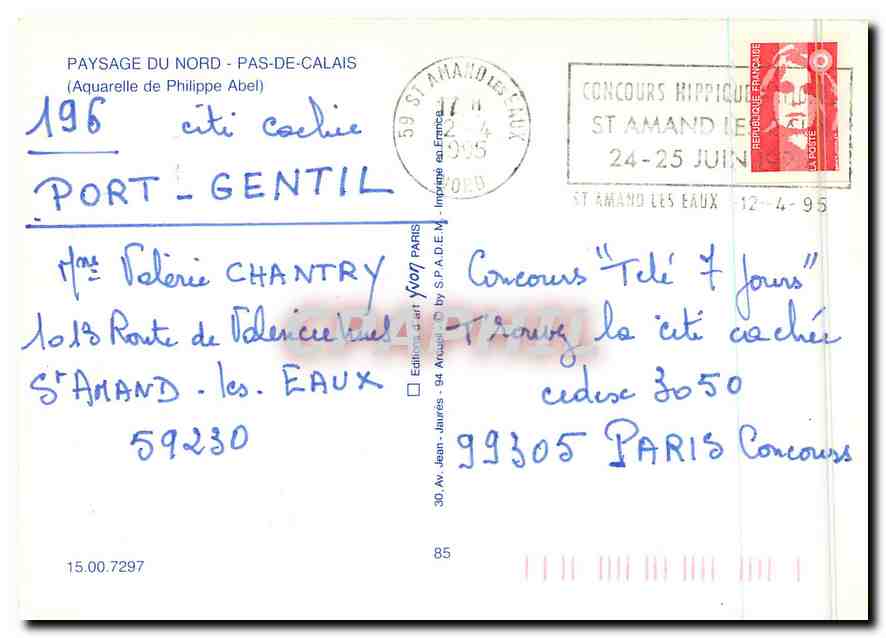 PAYSAGE DU NORD - PAS-DE-CALAIS
(Aquarelle de Philippe Abel)
196 citi cachie
PORT - GENTIL
Mme Valérie CHANTRY
1013 Route de Valenciennes
St AMAND - les - EAUX
59230
15.00.7297
85
30, Av. Jean - Jaurès - 94 Arcueil © by S.P.A.D.E.M. - Imprimé en France
Editions d'art Yvon PARIS
59 ST AMAND LES EAUX
12-4
1995
NORD
CONCOURS HIPPIQUE
ST AMAND LE
24-25 JUIN
ST AMAND LES EAUX 12-4-95
REPUBLIQUE FRANÇAISE
LA POSTE
Concours "Télé 7 Jours"
Trouvez la cité cachée
cedese 3050
99305 PARIS Concours
CPAPHIL